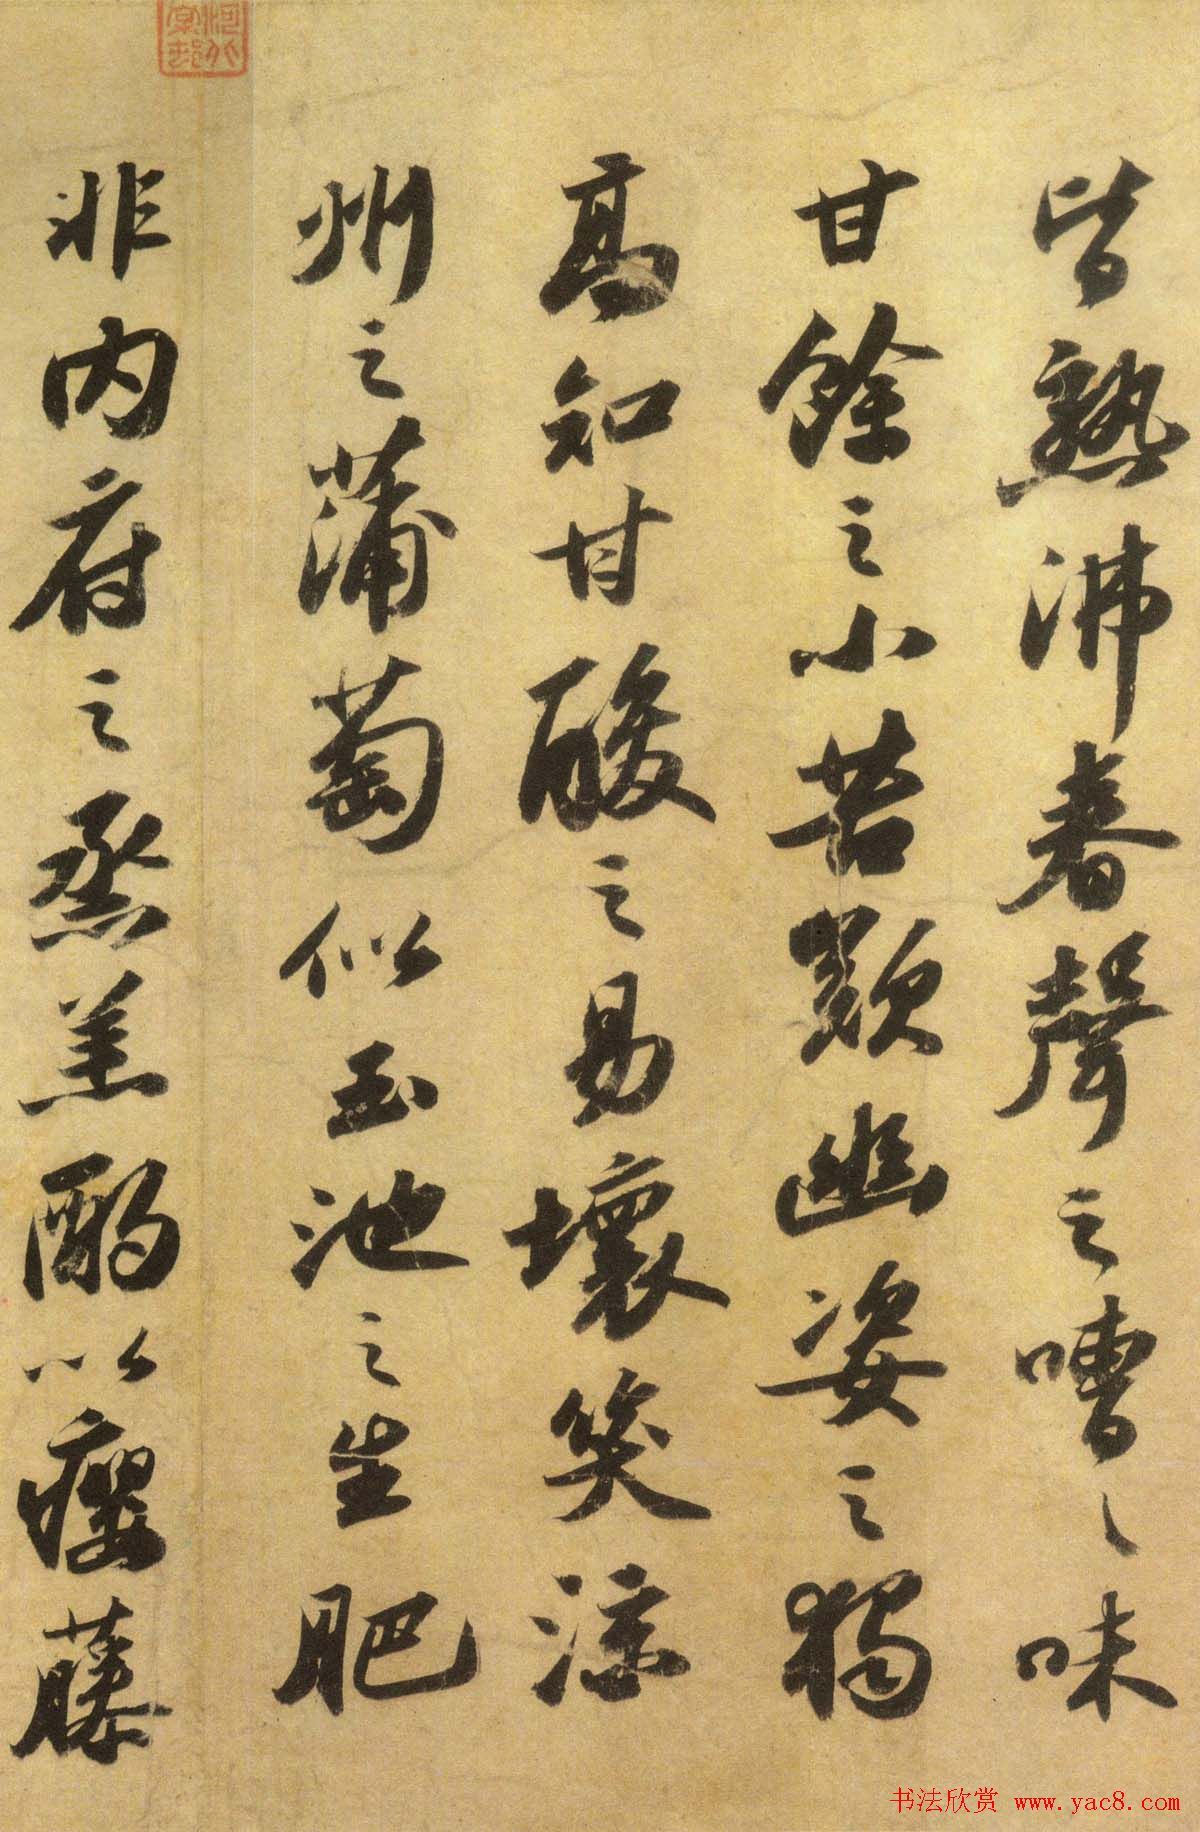 皆熟沸春聲之嘈〻味
甘餘之小苦歎幽姿之獨
高知甘酸之易壞笑涼
州之蒲萄似玉池之生肥
非内府之烝羔酌以癭藤
书法欣赏 www.yac8.com